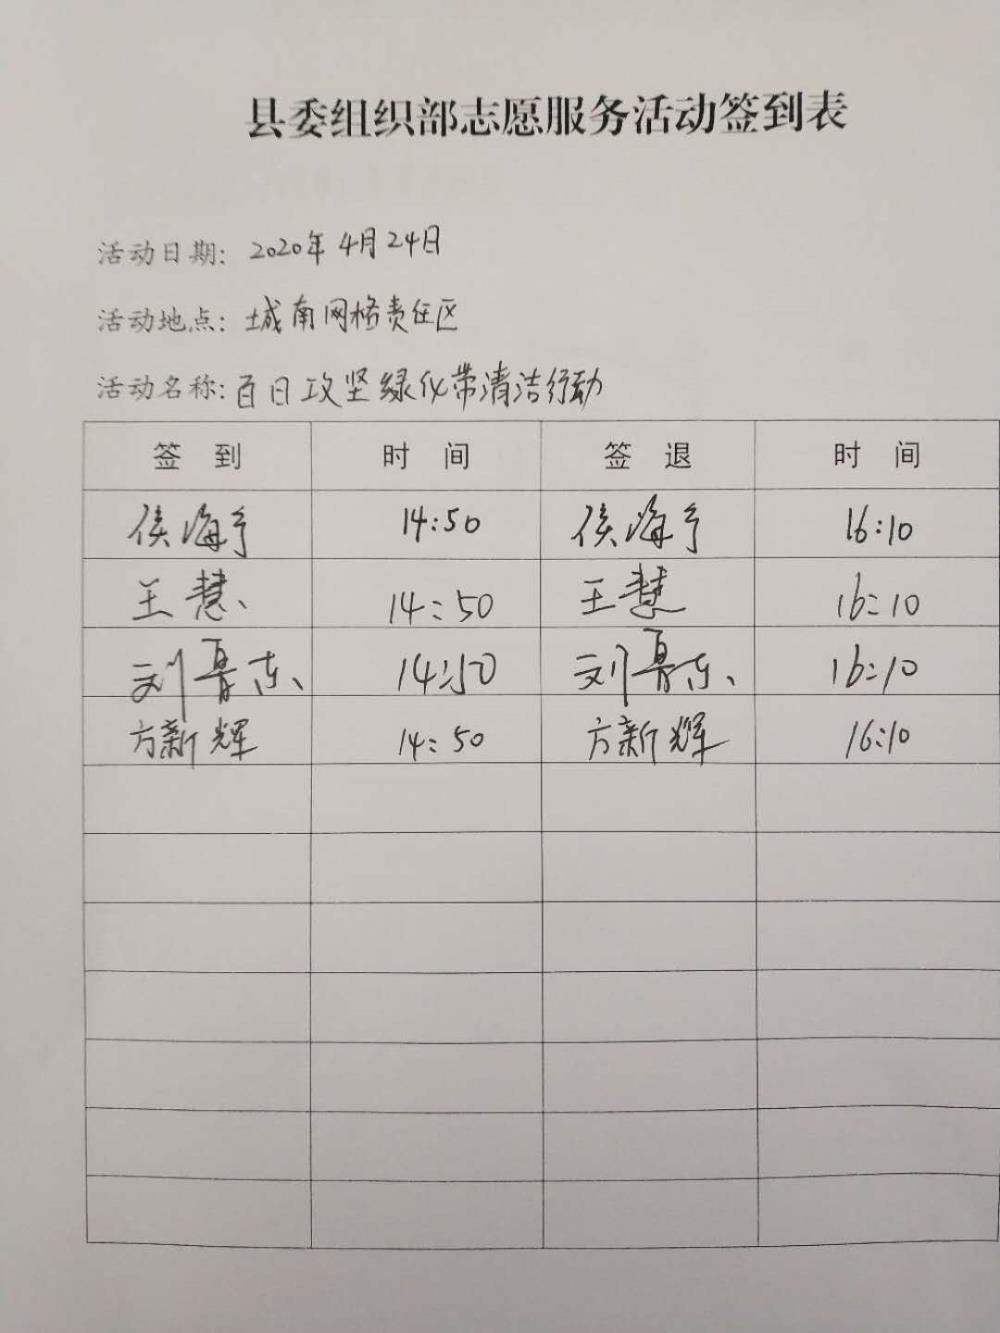 县委组织部志愿服务活动签到表
活动日期: 2020年4月24日
活动地点: 城南网格责任区
活动名称: 百日攻坚绿化带清洁行动
签 到 时 间 签 退 时 间
侯海宁 14:50 侯海宁 16:10
王慧 14:50 王慧 16:10
刘 东 14:50 刘 东 16:10
方新辉 14:50 方新辉 16:10